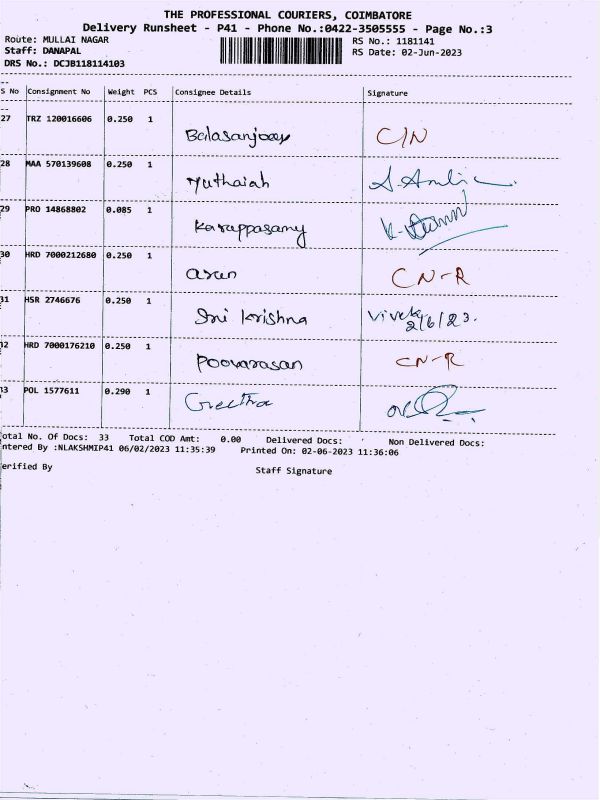 THE PROFESSIONAL COURIERS, COIMBATORE
Delivery Runsheet - P41 - Phone No.:0422-3505555 - Page No.:3
Route: MULLAI NAGAR RS No.: 1181141
Staff: DANAPAL RS Date: 02-Jun-2023
DRS No.: DCJB118114103
S No Consignment No Weight PCS Consignee Details Signature
27 TRZ 120016606 0.250 1
Balasanjoay C/N
28 MAA 570139608 0.250 1
Muthaiah
29 PRO 14868802 0.085 1
Karuppasamy
30 HRD 7000212680 0.250 1
arun CN-R
31 HSR 2746676 0.250 1
Sri Krishna Vivek
2/6/23.
2 HRD 7000176210 0.250 1
Poovarasan CN-R
3 POL 1577611 0.290 1
Geetha
otal No. Of Docs: 33 Total COD Amt: 0.00 Delivered Docs: Non Delivered Docs:
ntered By :NLAKSHMIP41 06/02/2023 11:35:39 Printed On: 02-06-2023 11:36:06
erified By Staff Signature